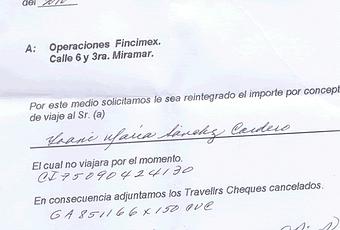 del 2010
A: Operaciones Fincimex.
Calle 6 y 3ra. Miramar.
Por este medio solicitamos le sea reintegrado el importe por concept
de viaje al Sr. (a)
María Sánchez Cordero
El cual no viajara por el momento.
CI 75090424130
En consecuencia adjuntamos los Travellrs Cheques cancelados.
GA851166 x 150 CUC